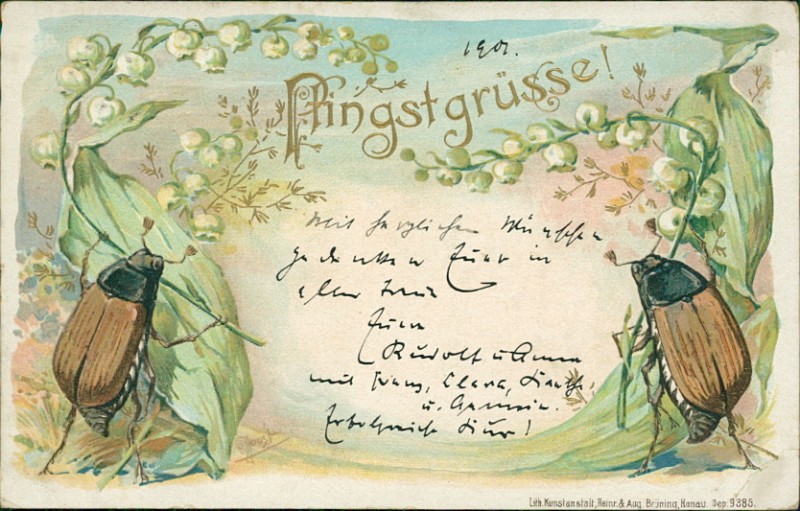 1901.
Pfingstgrüsse!
Mit herzlichen Wünschen
gedenken Euer in
aller Treue
Eure
Rudolf u Anna
mit Franz, Clara,
u.
Kur!
Lith. Kunstanstalt, Heinr. & Aug. Brüning, Hanau. Dep. 9385.